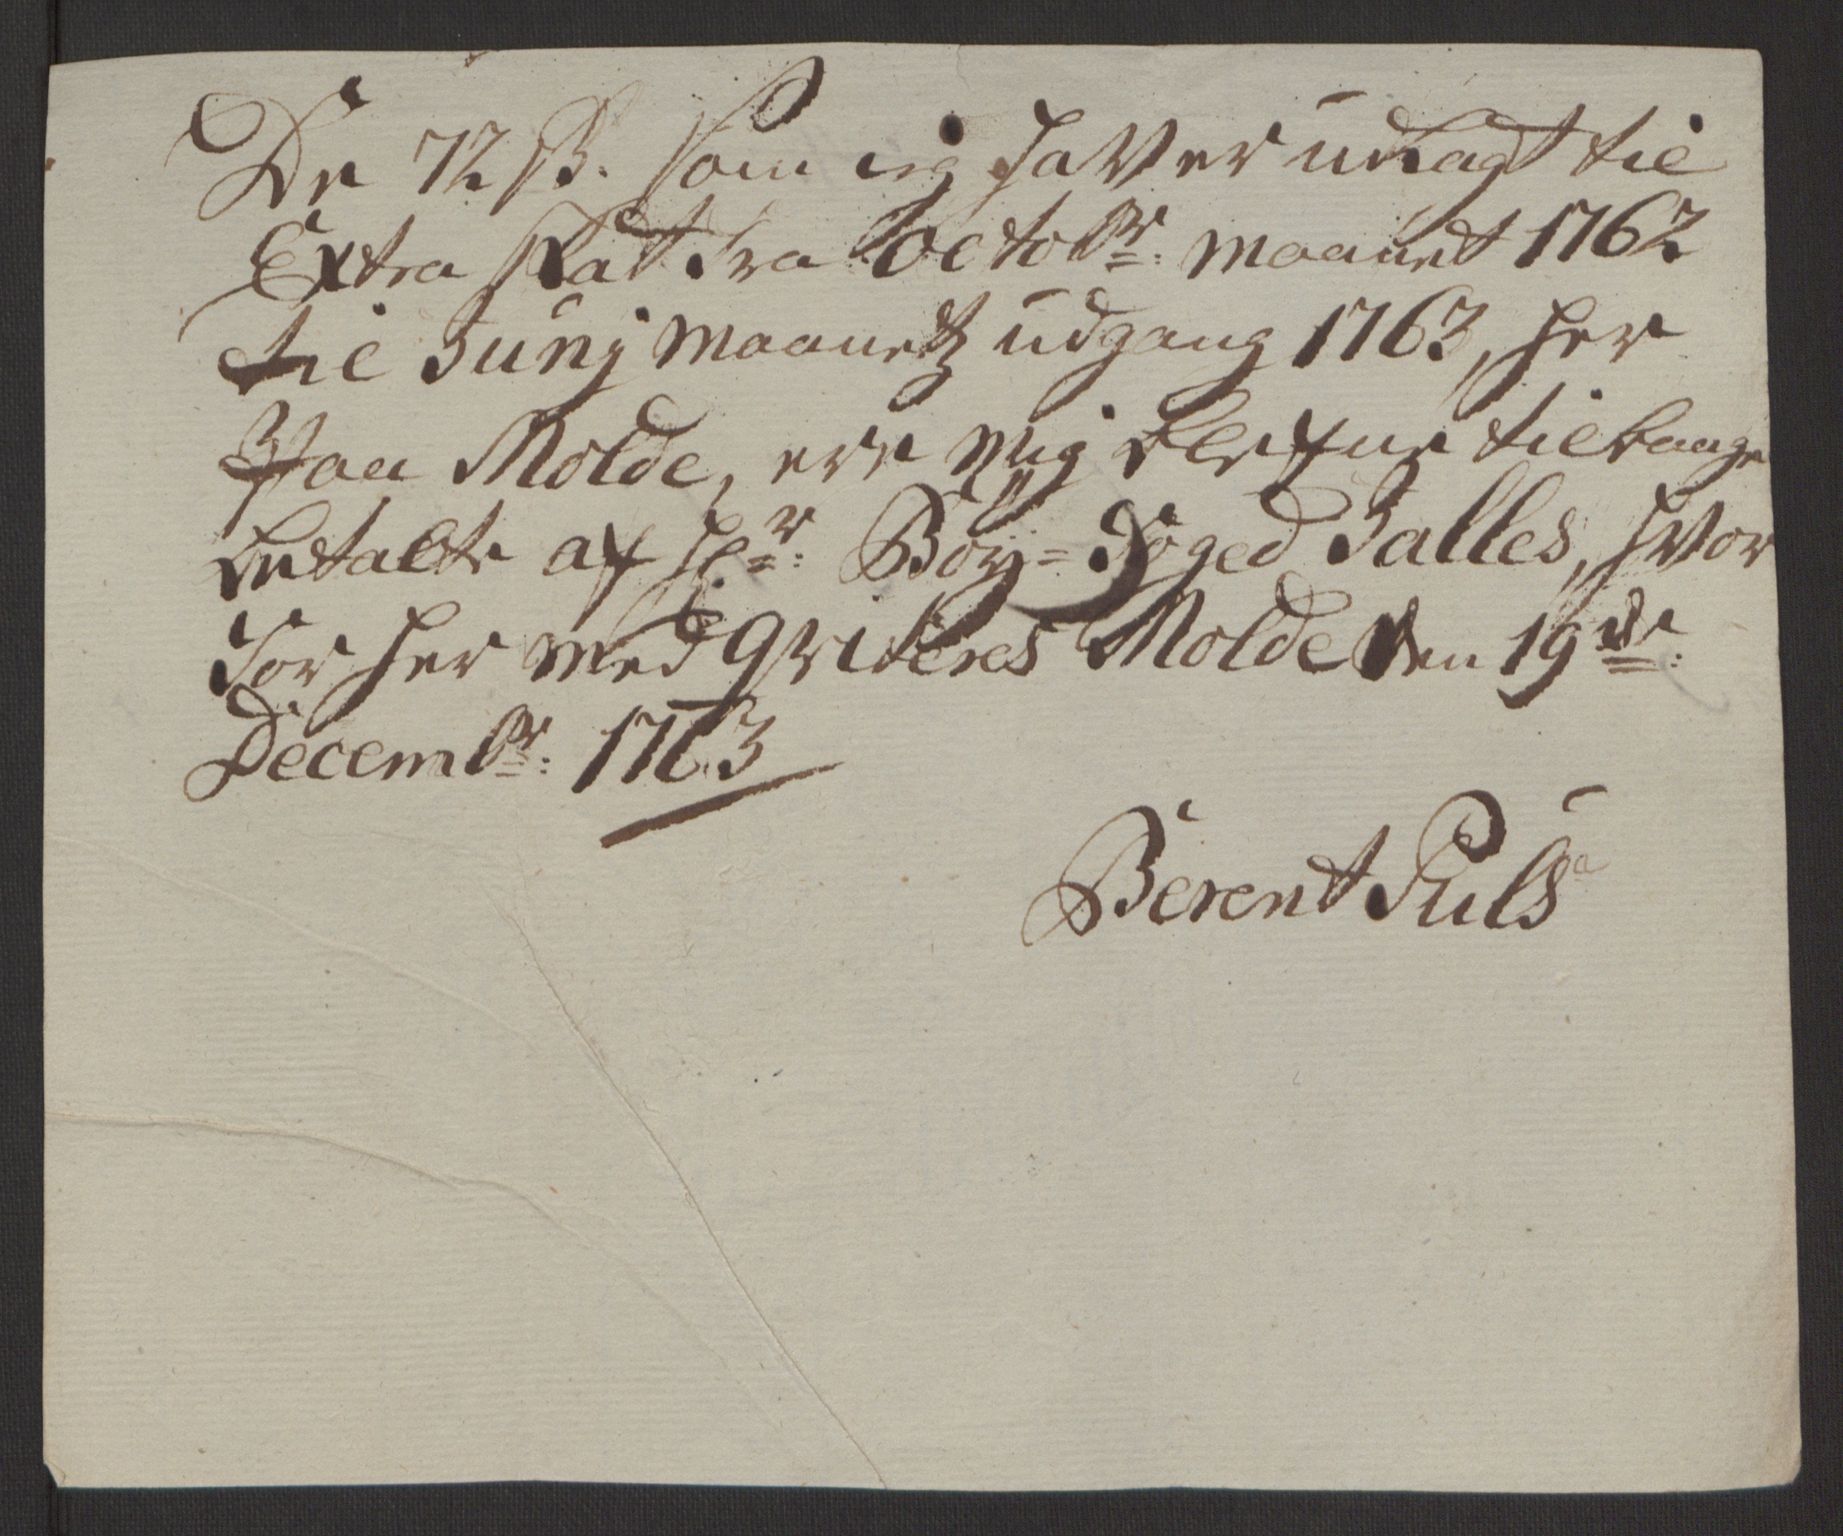 De 72 ß. som ieg haver udlagt til
Extra Skat fra octobr: maanet 1762
til Junj maanetz udgang 1763, her
Paa Molde, ere mig lefue tilbauge
betalte af Hr: Böy-foged Salles, hvor
for her med qviteres Molde den 19de:
Decembr: 1763
Berent Puls